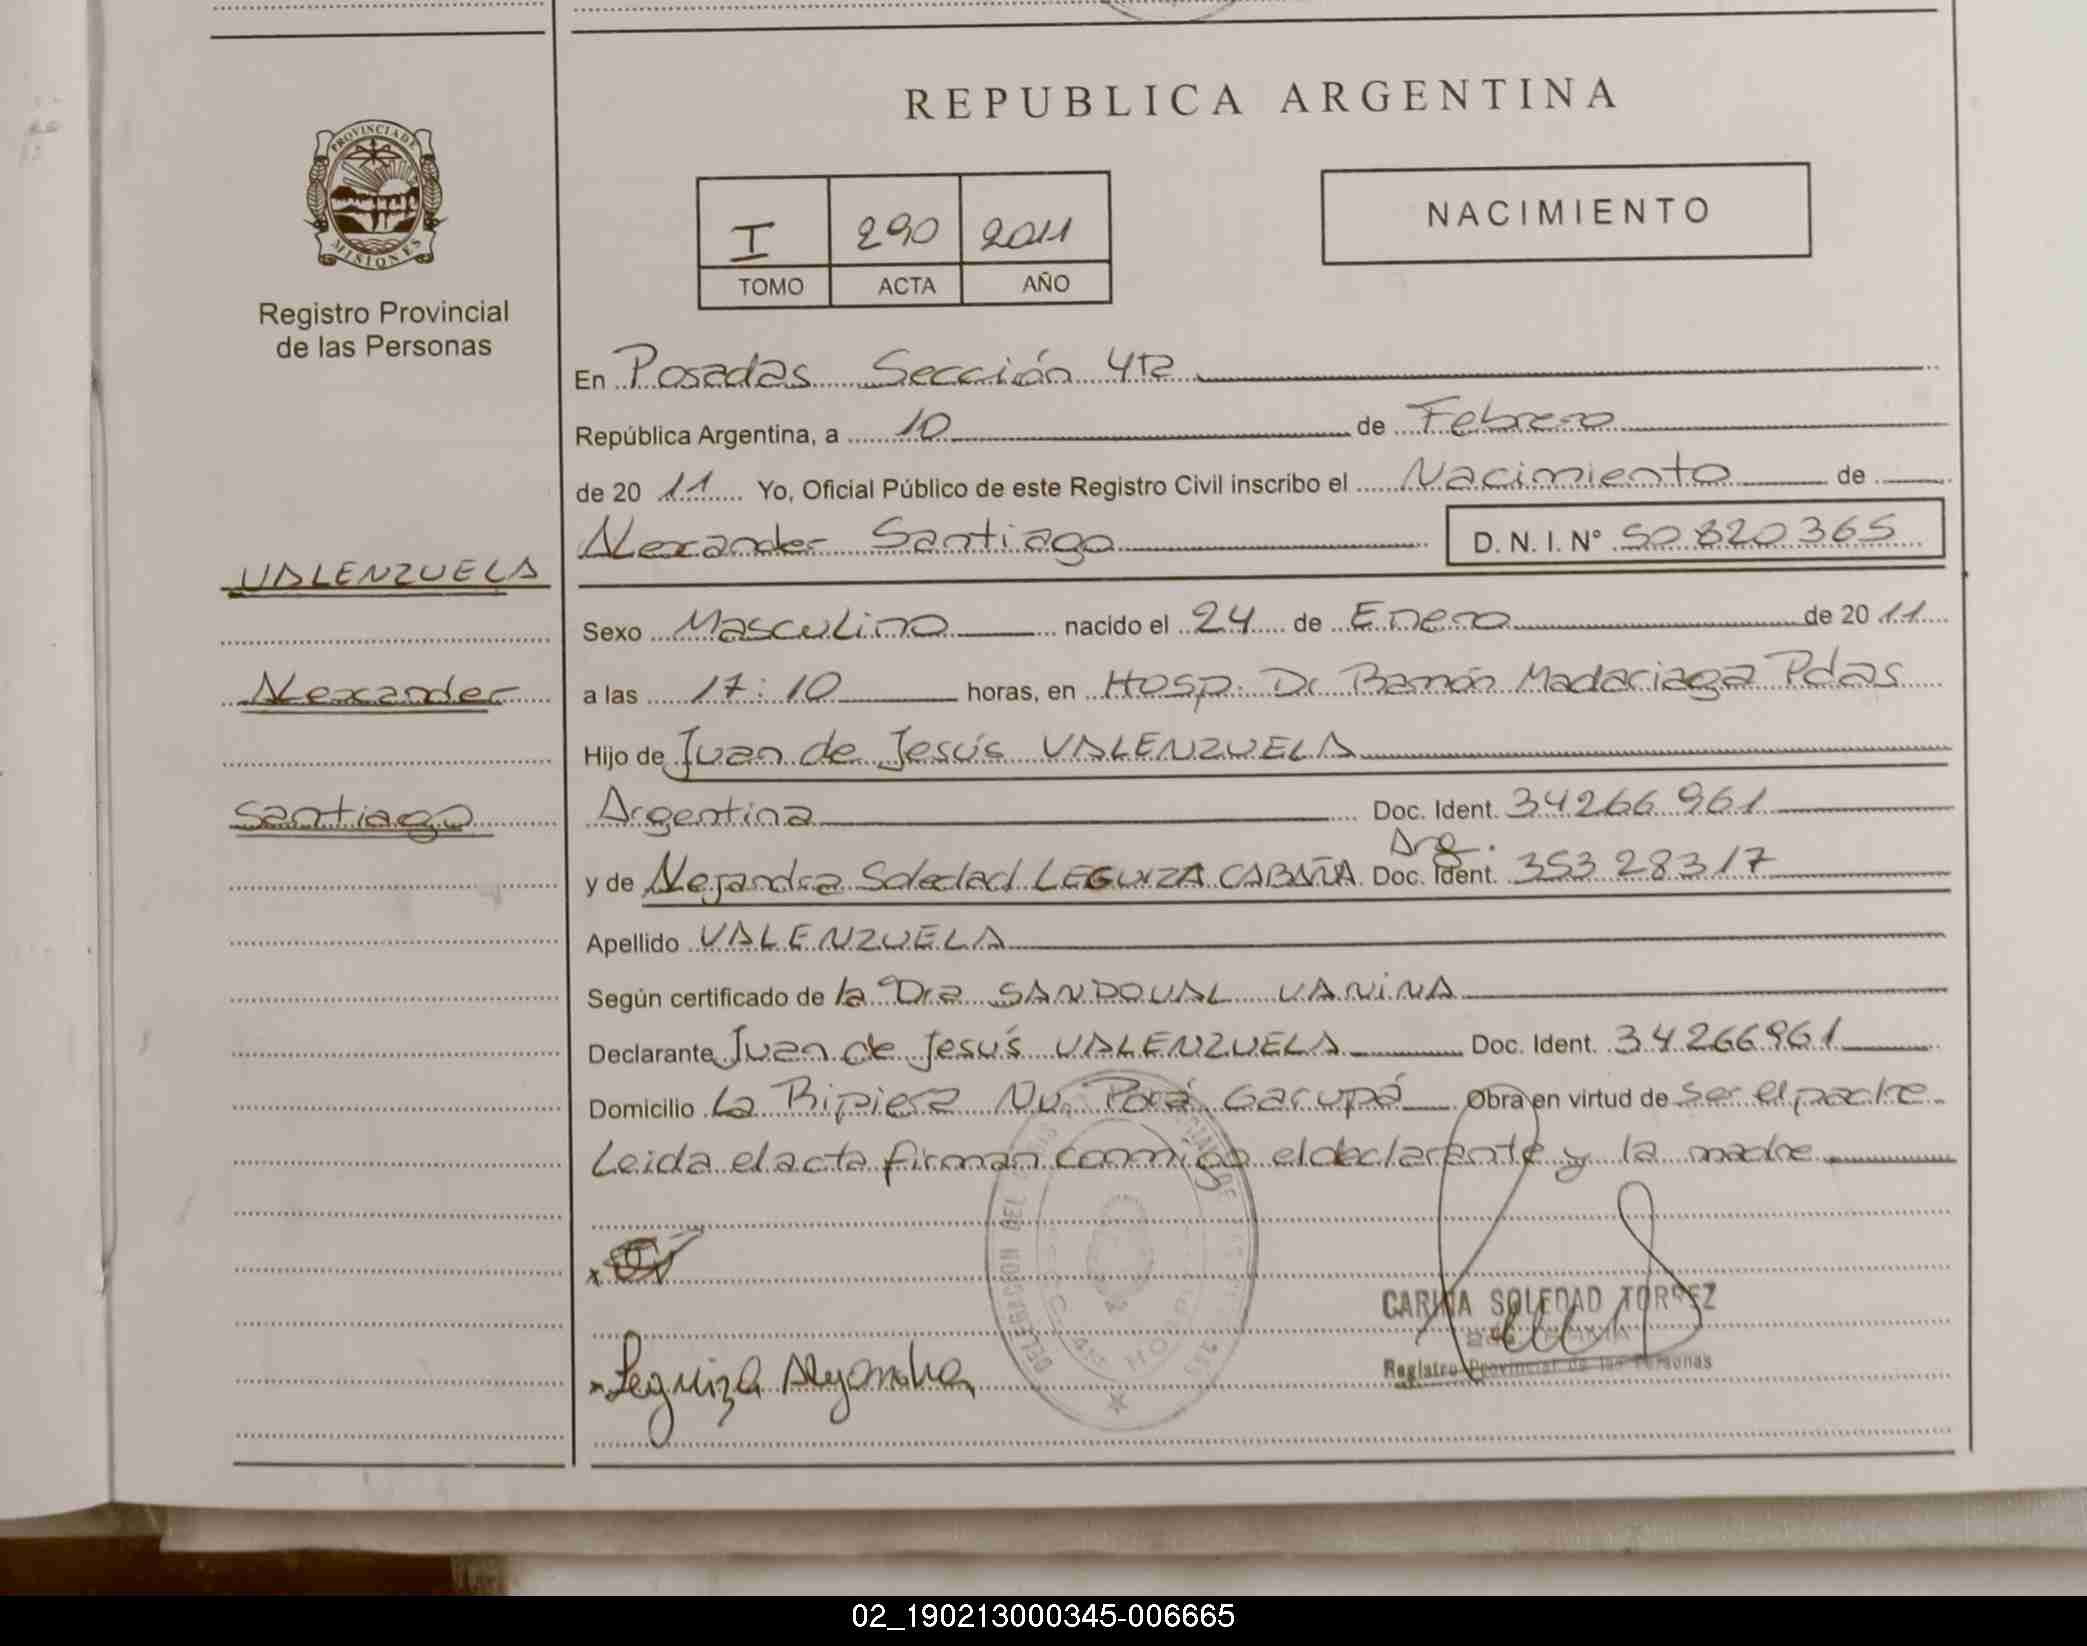 REPUBLICA ARGENTINA
PROVINCIA DE
MISIONES
Registro Provincial
de las Personas
I 290 2011
TOMO ACTA AÑO
NACIMIENTO
En Posadas Sección 4ta
República Argentina, a 10 de Febrero
de 20 11 Yo, Oficial Público de este Registro Civil inscribo el Nacimiento de
Alexander Santiago D. N. I. N° 50 820 365
VALENZUELA
Alexander
Santiago
Sexo Masculino nacido el 24 de Enero de 20 11
a las 17:10 horas, en Hosp. Dr Ramón Madariaga Pdas
Hijo de Juan de Jesús VALENZUELA
Argentina Doc. Ident. 34266961
Arg.
y de Alejandra Soledad LEGUIZA CABAÑA Doc. Ident. 353 28317
Apellido VALENZUELA
Según certificado de la Dra SANDOVAL VANINA
Declarante Juan de Jesús VALENZUELA Doc. Ident. 34266961
Domicilio La Ripiera Nu. Porá Garupá Obra en virtud de ser el padre
Leida el acta firman conmigo el declarante y la madre
x
x Leguiza Alejandra
CARINA SOLEDAD TORREZ
Registro Provincial de las Personas
02_190213000345-006665